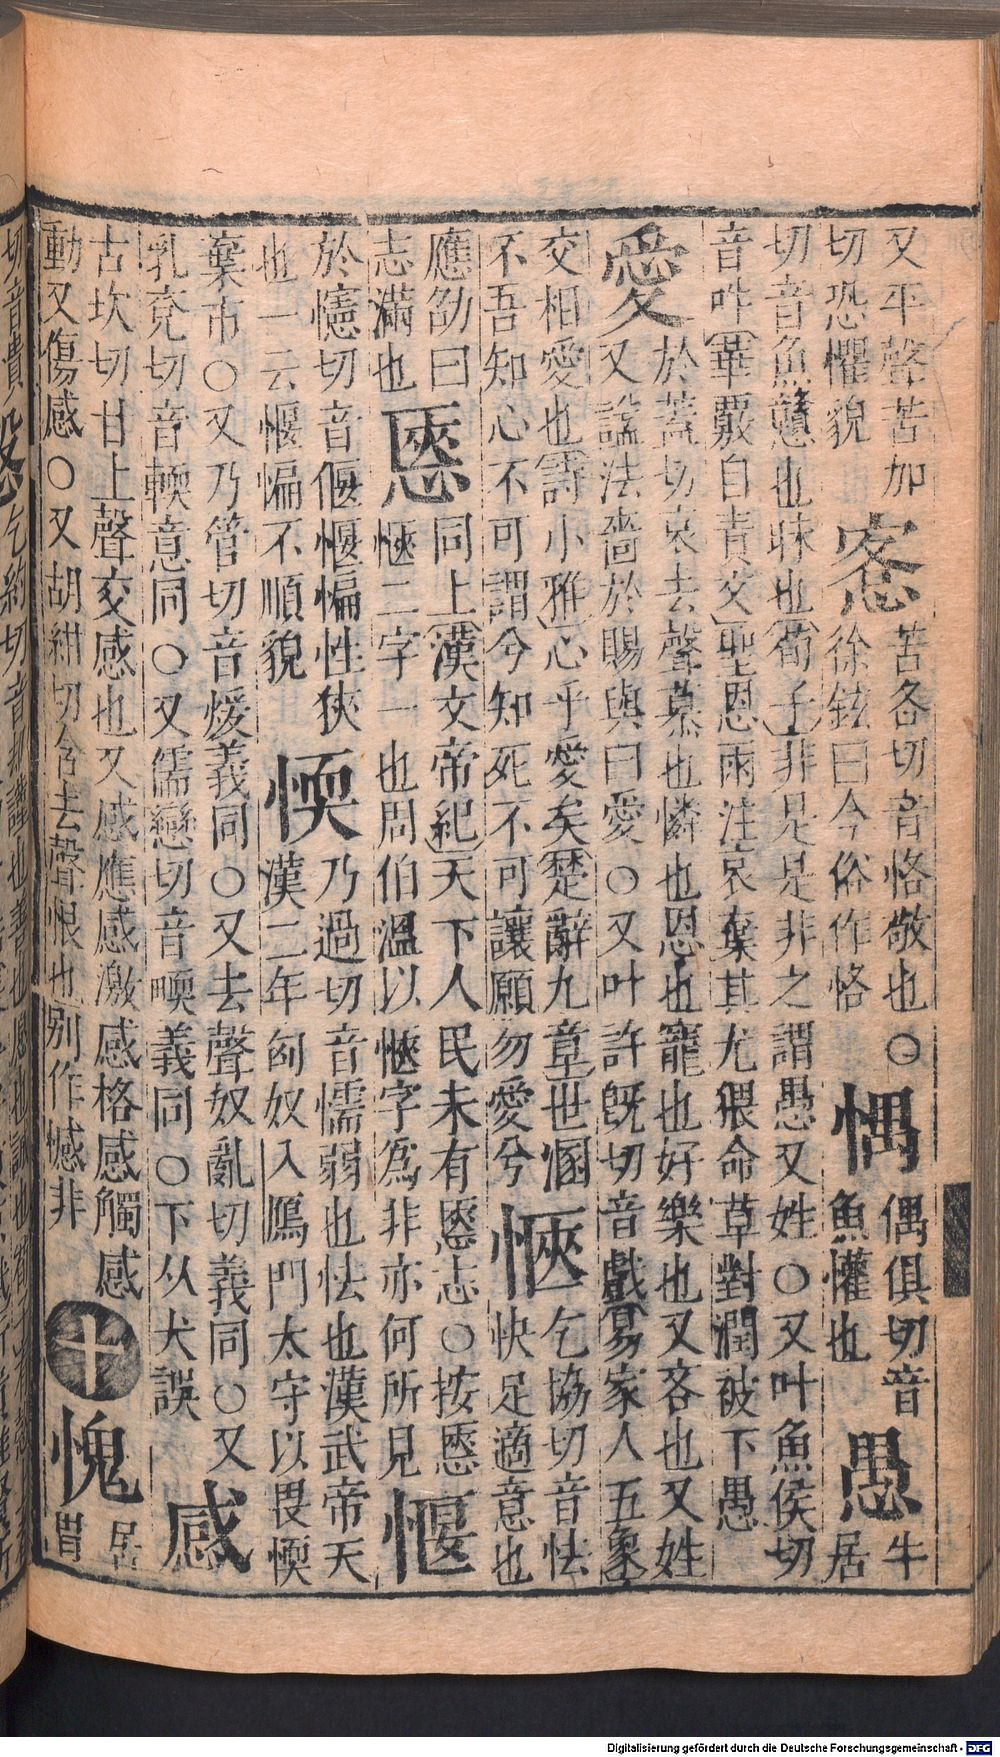 又平聲苦加
切恐懼貌
愙
苦各切音恪敬也○
徐鉉曰今俗作恪
愲
偶俱切音
魚懽也
愚
牛居
切音魚戇也昧也荀子非是是非之謂愚又姓○又叶魚侯切
音吽華覈自責文聖恩雨注哀棄其尤猥命草對潤被下愚
愛
於蓋切哀去聲慕也憐也恩也寵也好樂也又吝也又姓
又諡法嗇於賜與曰愛○又叶許旣切音戲易家人五象
交相愛也詩小雅心乎愛矣楚辭九章世溷
不吾知心不可謂兮知死不可讓願勿愛兮
愜
乞協切音怯
快足適意也
應劭曰
志滿也
㥦
同上漢文帝紀天下人民未有㥦志○按㥦
愜二字一也周伯溫以愜字爲非亦何所見
愝
於幰切音偃愝惼性狹
也一云愝惼不順貌
愞
乃過切音懦弱也怯也漢武帝天
漢二年匈奴入鴈門太守以畏愞
棄市○又乃管切音煖義同○又去聲奴亂切義同○又
乳兗切音輭意同○又儒戀切音㬉義同○下从犬誤
感
古坎切甘上聲交感也又感應感激感格感觸感
動又傷感○又胡紺切含去聲恨也別作憾非
十
愧
居
胃
Digitalisierung gefördert durch die Deutsche Forschungsgemeinschaft - DFG